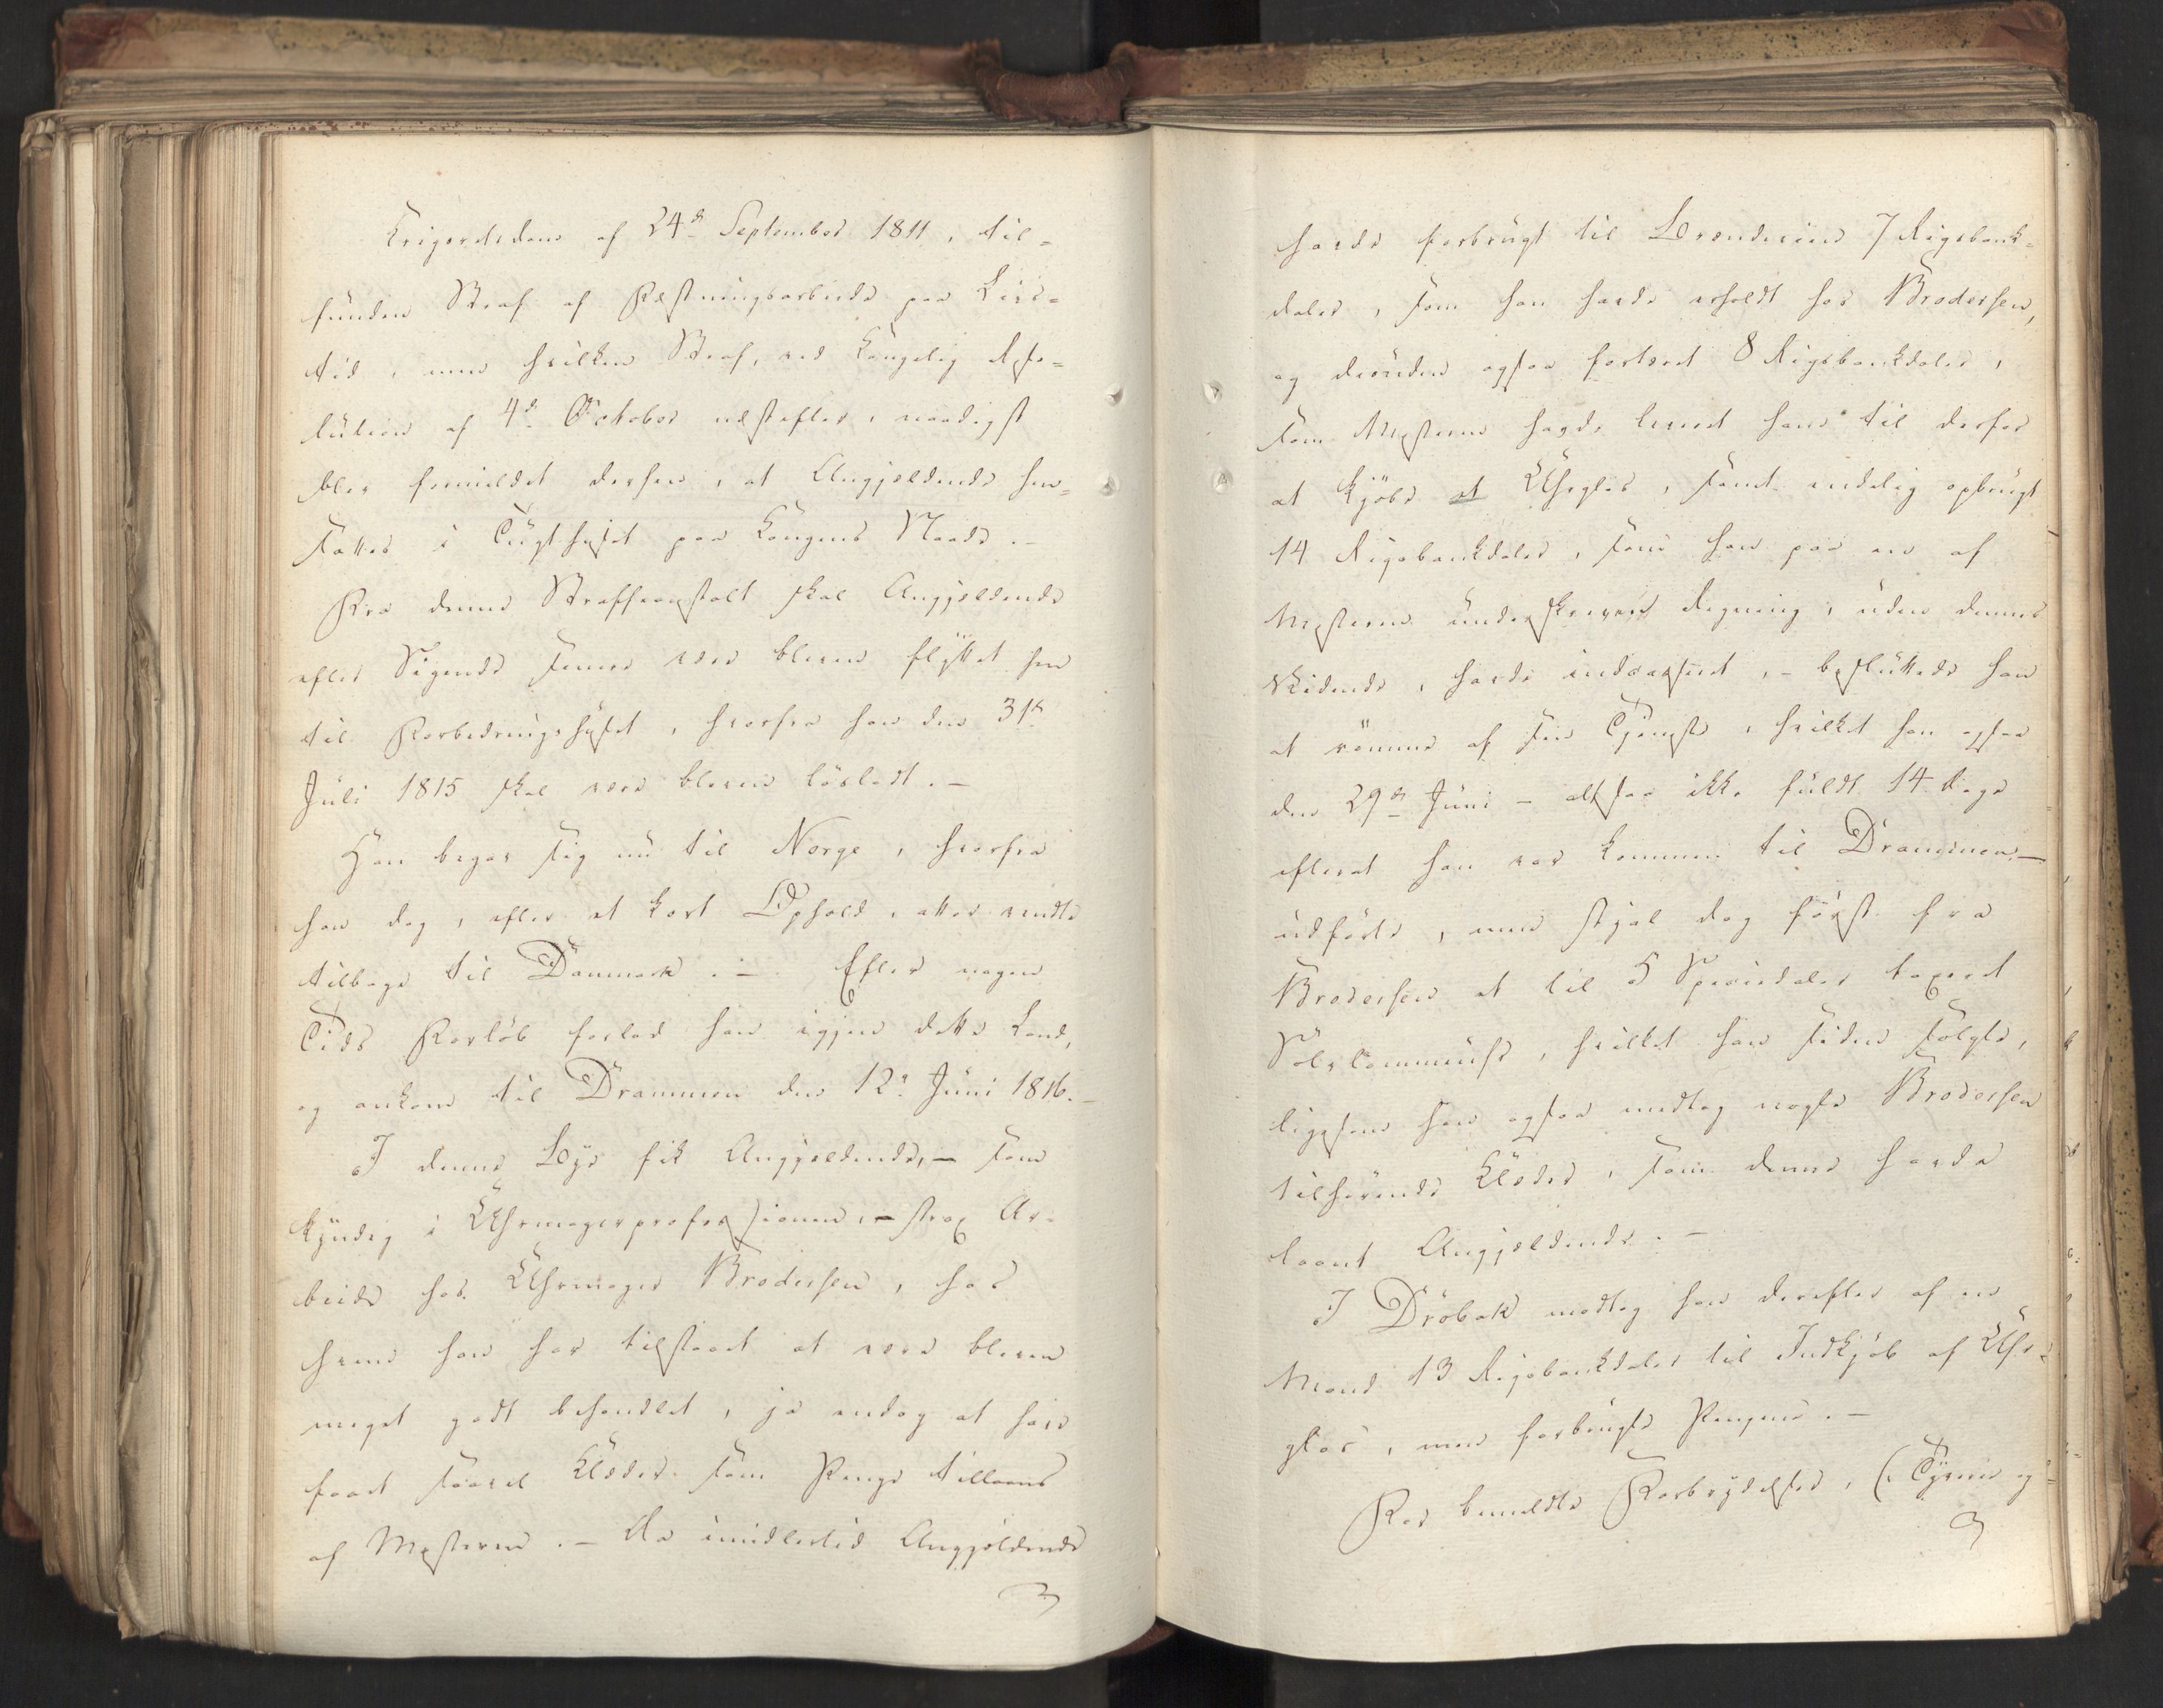 Krigsretsdom af 24d September 1811, til-
funden Straf af Fæstningsarbeide paa Livs-
tid, men hvilken Straf, ved Kongelig Reso-
lution af 4d October næstefter, naadigst
blev formildet derhen, at Angjeldende hen-
sattes i Tugthuset paa Kongens Naade.-
Fra denne Straffeanstalt skal Angjeldende
efter Sigende senere være bleven flyttet hen
til Forbedringshuset, hvorfra han den 31te
Juli 1815 skal være bleven løsladt.-
Han begav sig nu til Norge, hvorfra
han dog, efter et kort Ophold, atter vendte
tilbage til Danmark.- Efter nogen
Tids Forløb forlod han igjen dette Land,
og ankom til Drammen den 12te Juni 1816.-
I denne Bye fik Angjeldende,- som
kyndig i Uhrmagerprofessionen,- strax Ar-
beide hos Uhrmager Brodersen, hos
hvem han har tilstaaet at være bleven
meget godt behandlet, ja endog at have
faaet saavel Klæder som Penge tillaans
af Mesteren.- Da imidlertid Angjeldende
havde forbrugt til Brændeviin 7 Rigsbank-
daler, som han havde erholdt hos Brodersen,
og desuden ogsaa fortæret 8 Rigsbankdaler,
som Mesteren havde leveret ham til derfor
at kjøbe et Uhrglas, samt endelig opbrugt
14 Rigsbankdaler, som han paa en af
Mesteren underskreven Regning, uden dennes
Vidende, havde indcasseret,- besluttede han
at rømme af sin Tjeneste, hvilket han ogsaa
den 29de Juni - altsaa ikke fuldt 14 Dage
efterat han var kommen til Drammen.-
udførte, men stjal dog først fra
Brodersen et til 5 Speciedaler taxeret
Sølvlommeuhr, hvilket han siden solgte,
ligesom han ogsaa medtog nogle Brodersen
tilhørende Klæder, som denne havde
laant Angjeldende.-
I Drøbak modtog han derefter af en
Mand 13 Rigsbankdaler til Indkjøb af Uhr-
glas, men forbrugte Pengene.-
For bemeldte Forbrydelser, (Tyverie og